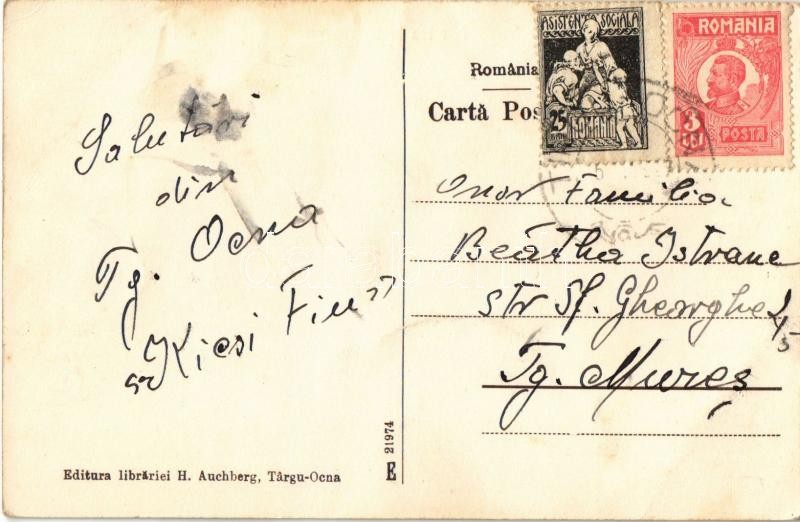 Salutări
din
Tg. Ocna
"Kicsi Fiu"
Editura librăriei H. Auchberg, Târgu-Ocna
E 21974
România
Cartă Pos
ASISTENȚA SOCIALA
25
BANI
ROMANIA
ROMANIA
3
LEI
POSTA
Onor Familia
Beátha Istvane
str Sf. Gheorghe
Tg. Mureș